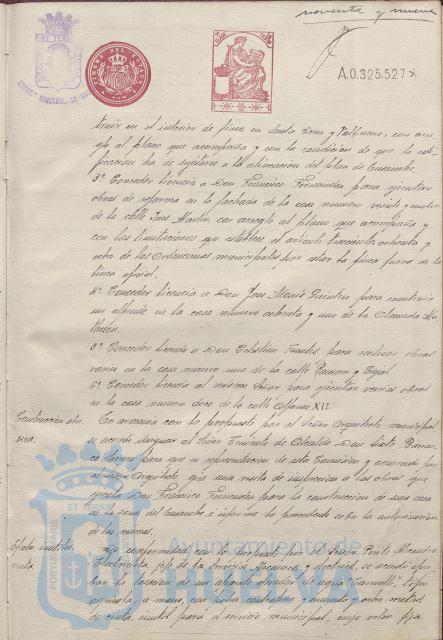 noventa y nueve
A.0.325.527
truir en el interior de finca en Santa Cruz y Valbuena, con arre-
glo al plano que acompaña y con la condición de que la edi-
ficación ha de sujetarse a la alineación del plan de Ensanche.
3º Conceder licencia a Don Francisco Fernandez para ejecutar
obras de reforma en la fachada de la casa numero veinte y cuatro
de la calle Jara Martin, con arreglo al plano que acompaña y
con las limitaciones que establece el articulo trescientos ochenta y
ocho de las Ordenanzas municipales por estar la finca fuera de la
linea oficial.
4º Conceder licencia a Don Jose Maria Quintero para construir
un albende en la casa numero ochenta y uno de la Alameda Ma-
theson.
5º Conceder licencia a Don Celestino Fuentes para realizar obras
varias en la casa numero uno de la calle Ramon y Cajal
6º Conceder licencia al mismo Señor para ejecutar varias obras
en la casa numero doce de la calle Alfonso XII.
Construccion abu-
siva.
En armonia con lo propuesto por el Señor Arquitecto municipal
se acordó designar al Señor Teniente de Alcalde Don Sixto
para que en representación de esta Comision y asesorado por
el Señor Arquitecto gire una visita de inspección a las obras que
ejecuta Don Francisco Fernandez para la construcción de una casa
en la zona del Ensanche e informe lo procedente sobre la autorización
de las mismas.
De conformidad con lo propuesto por el Señor Perito Mecanico
Electricista, jefe de los servicios Mecanicos y electricos, se acordó apro-
bar la tasación de un aparato elevador de agua
a mano, con
de cinta para el servicio municipal, cuyo valor fija
Ayuntamiento de
HUELVA